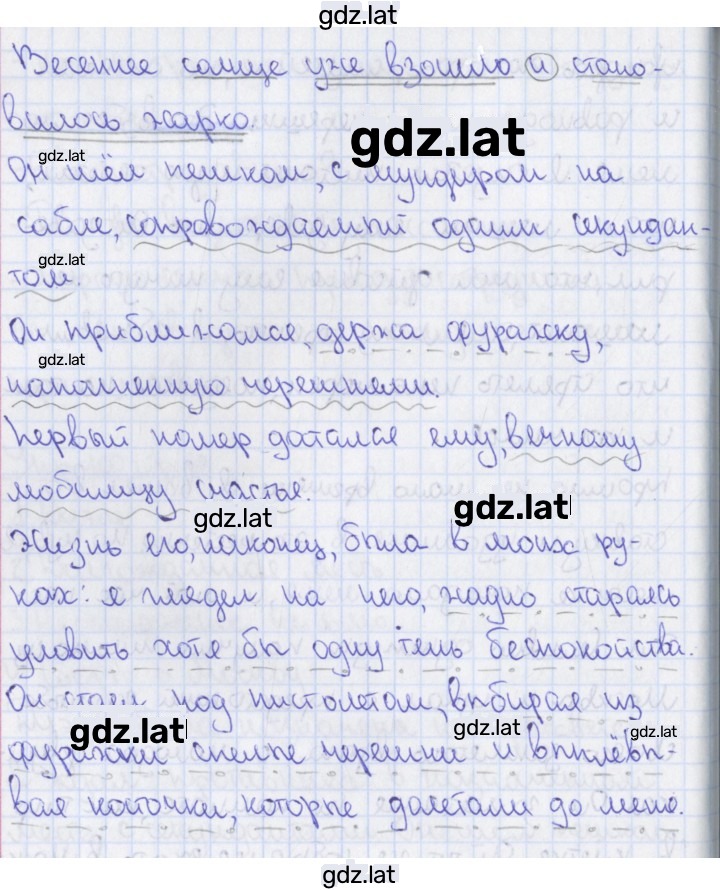 gdz.lat
Весеннее солнце уже взошло и стано-
вилось жарко.
gdz.lat
gdz.lat
Он шёл пешком, с мундиром на
сабле, сопровождаемый одним секундан-
gdz.lat
том.
Он приближался, держа фуражку,
gdz.lat
наполненную черешнями.
Первый номер достался ему, вечному
любимцу счастья.
gdz.lat
gdz.lat
Жизнь его, наконец, была в моих ру-
ках: я глядел на него, жадно стараясь
уловить хотя бы одну тень беспокойства.
Он стоял под пистолетом, выбирая из
gdz.lat
gdz.lat
gdz.lat
фуражки спелые черешни и выплёвы-
вая косточки, которые далетали до меня.
gdz.lat